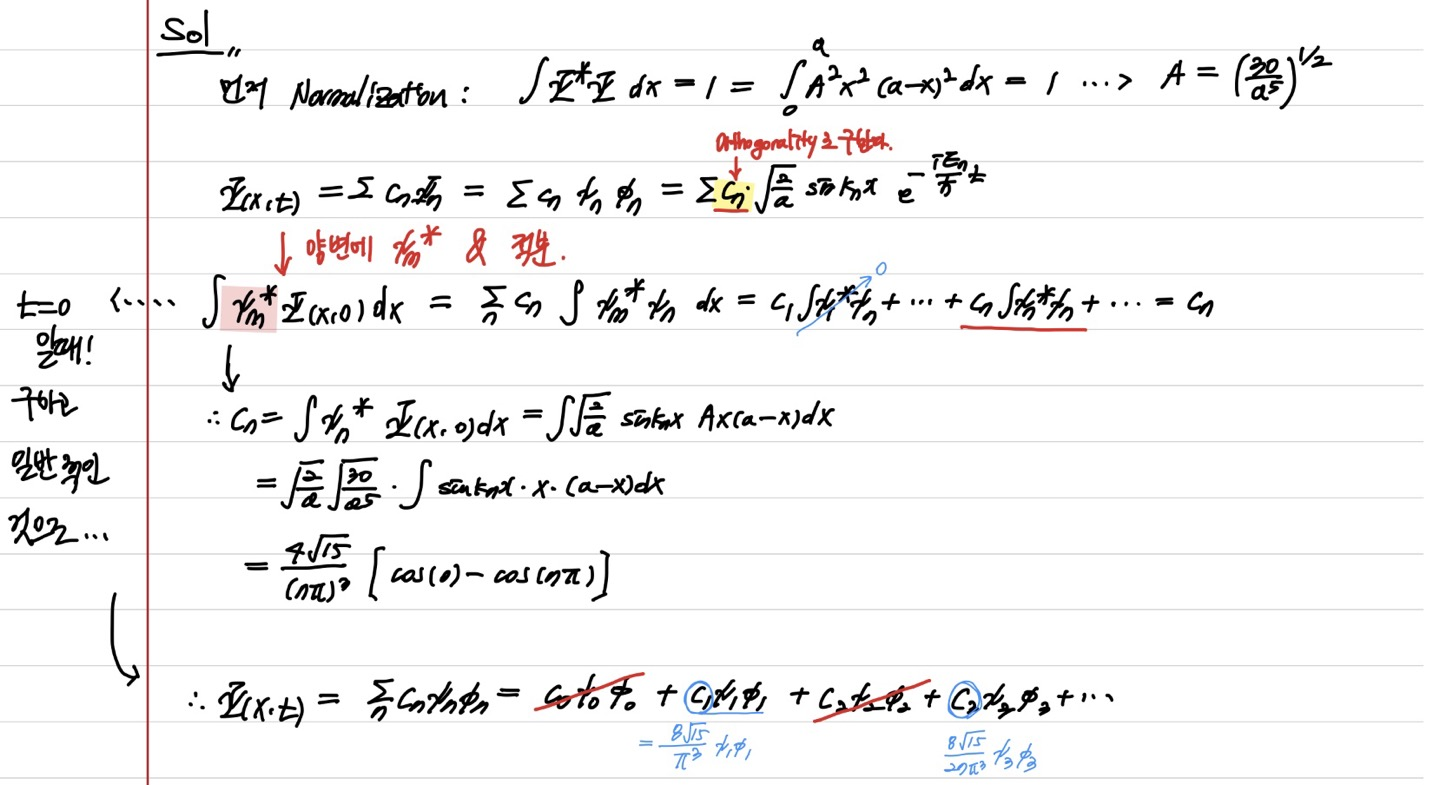 Sol
먼저 Normalization : ∫Ψ*Ψ dx = 1 = ∫₀ᵃ A²x²(a-x)²dx = 1 ...> A = (30/a⁵)^1/2
Orthogonality로 구한다.
Ψ(x,t) = Σ cₙΨₙ = Σ cₙ ψₙ ϕₙ = Σ cₙ·√(2/a) sin kₙx e^(-iEₙ/ħ t)
↓ 양변에 ψₘ* & 적분.
t=0 <.... ∫ψₘ* Ψ(x,0) dx = Σₙ cₙ ∫ψₘ*ψₙ dx = c₁∫ψ₁*ψₙ + ... + cₙ∫ψₙ*ψₙ + ... = cₙ
0
일때!
구하고
일반적인
것으로...
↓
∴ cₙ = ∫ψₙ* Ψ(x,0)dx = ∫√(2/a) sin kₙx Ax(a-x)dx
= √(2/a) √(30/a⁵) · ∫ sin kₙx · x · (a-x)dx
= 4√15/(nπ)³ [cos(0) - cos(nπ)]
∴ Ψ(x,t) = Σₙ cₙψₙϕₙ = c₀ψ₀ϕ₀ + c₁ψ₁ϕ₁ + c₂ψ₂ϕ₂ + c₃ψ₃ϕ₃ + ...
= 8√15/π³ ψ₁ϕ₁
8√15/27π³ ψ₃ϕ₃